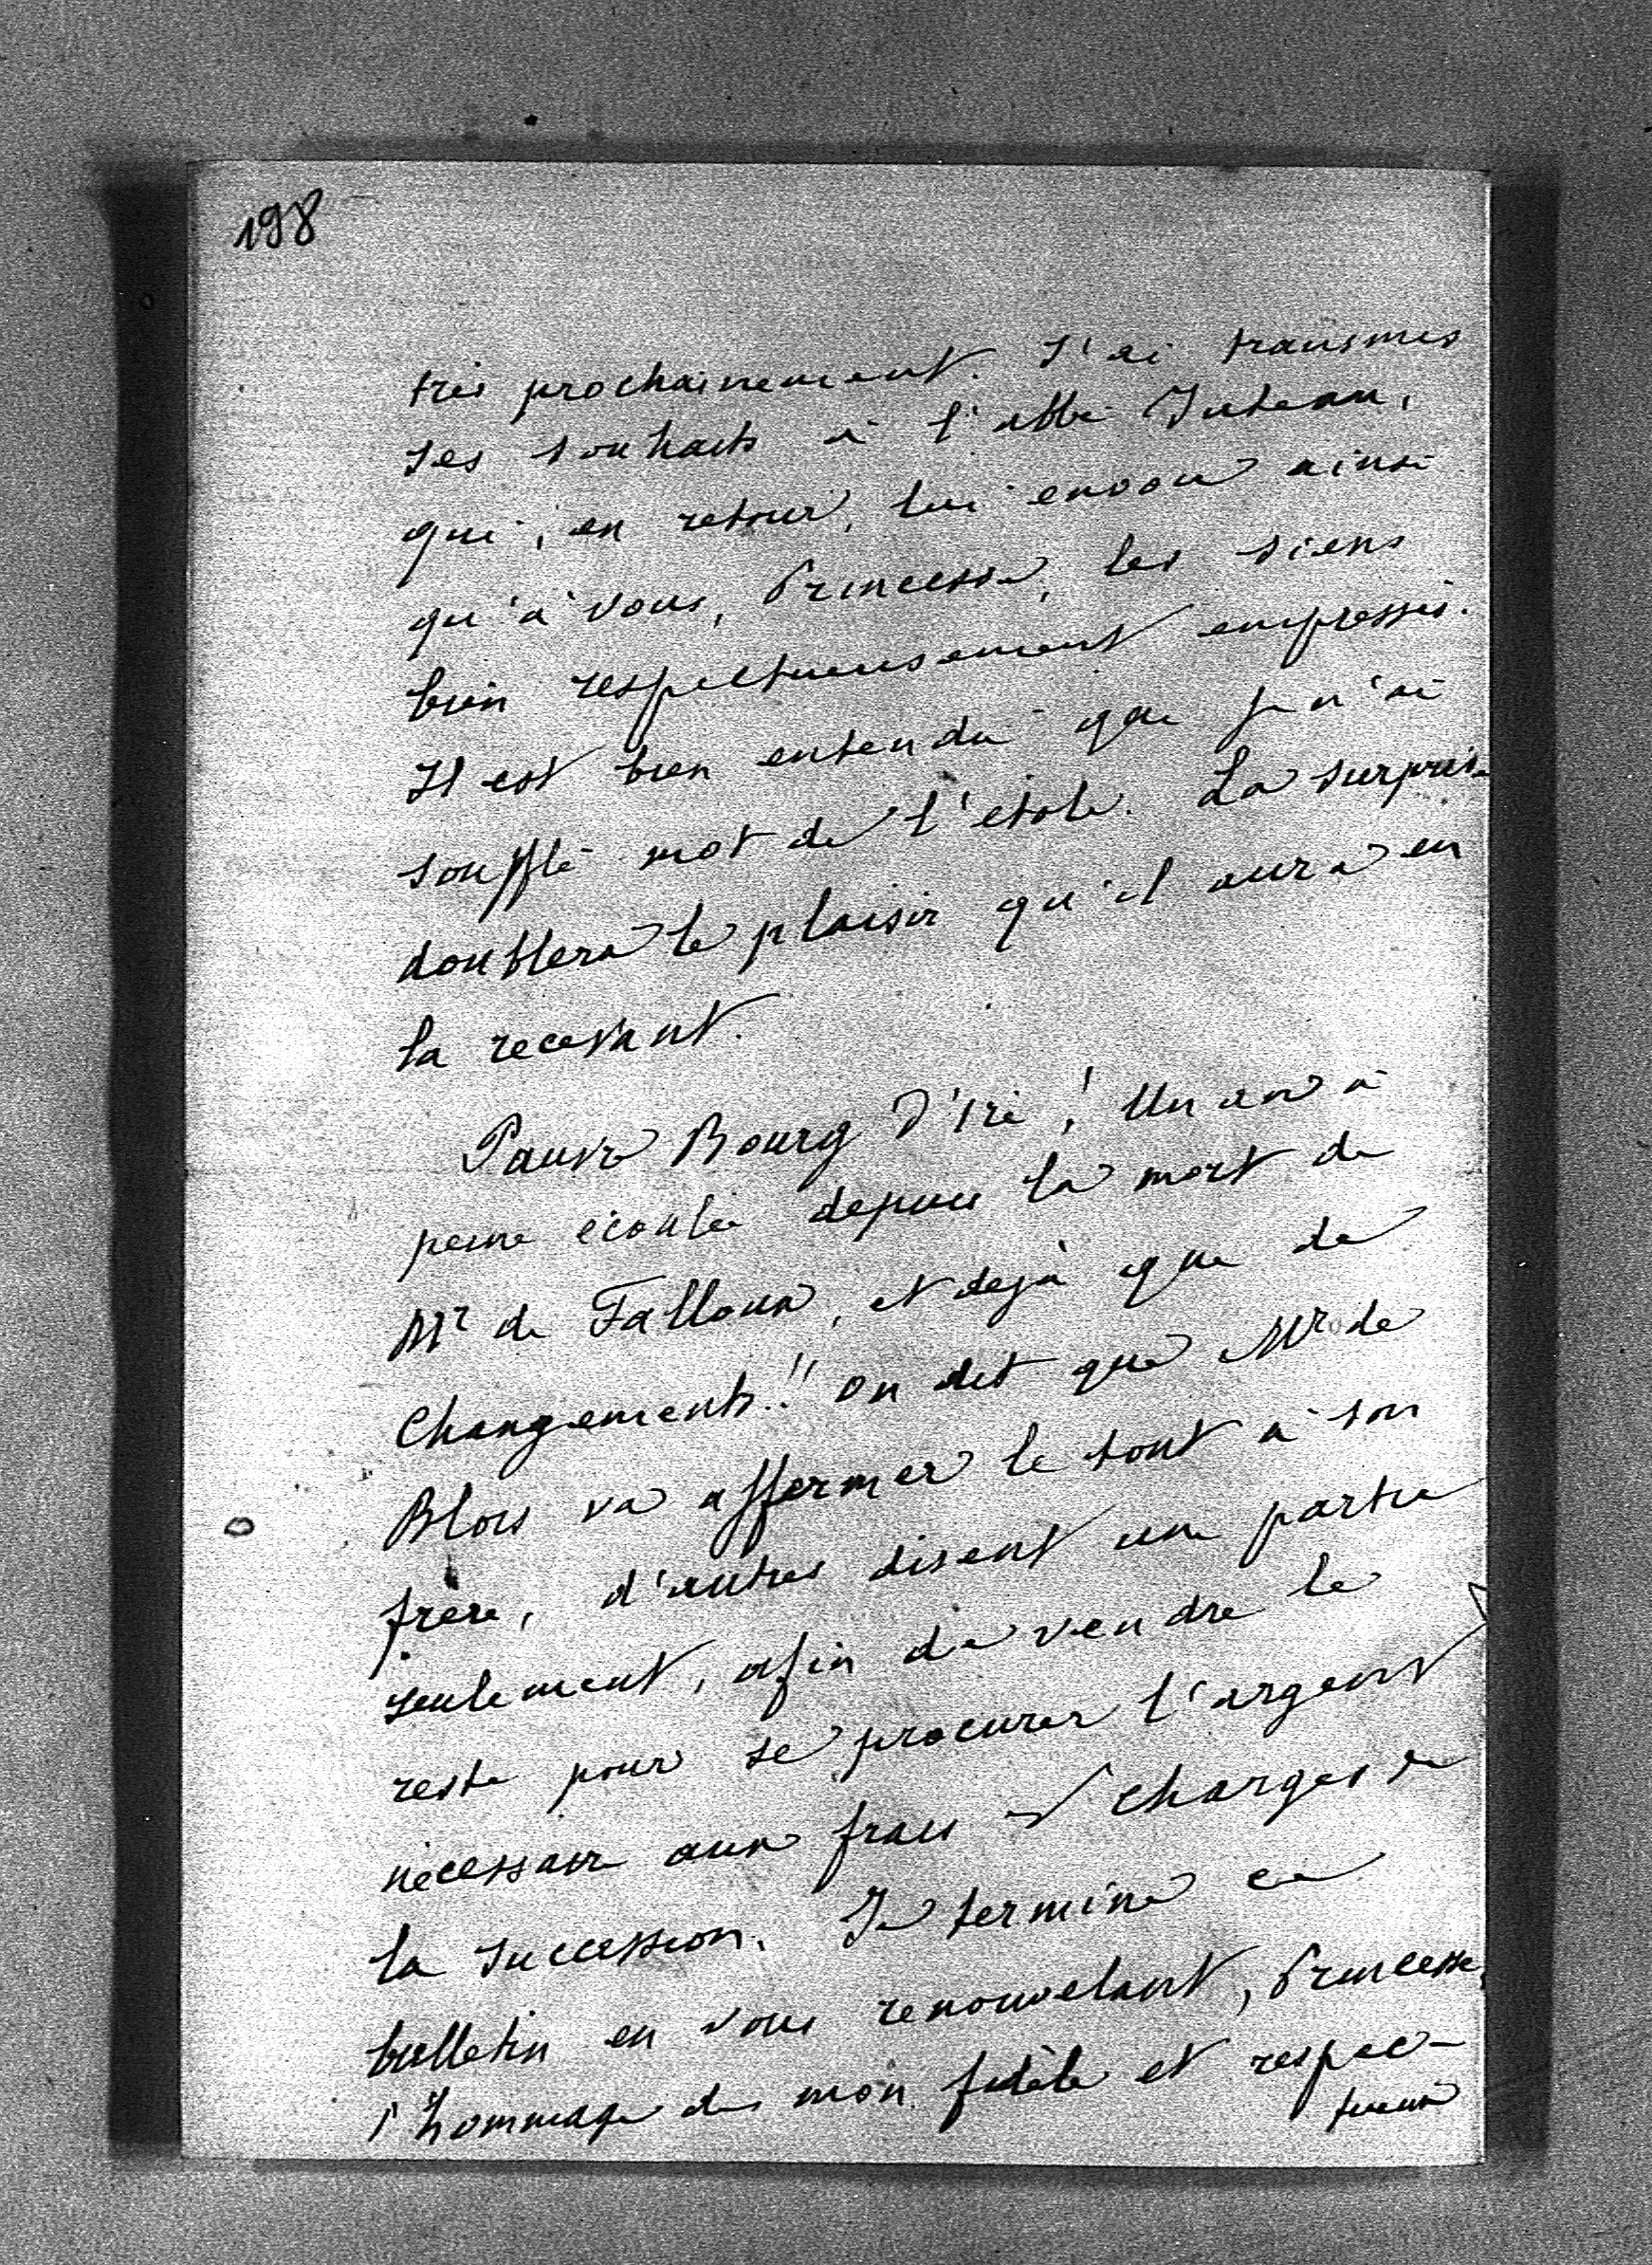 198
très prochainement. J'ai transmis
ses souhaits à l'abbé Juteau,
qui, en retour, lui envoie ainsi
qu'à vous, Princesse, les siens
bien respectueusement empressés.
Il est bien entendu que je n'ai
soufflé mot de l'étole. La surprise
doublera le plaisir qu'il aura en
la recevant.
Pauvre Bourg d'Iré! Un an à
peine écoulé depuis la mort de
Mr de Falloux, et déjà que de
changements!! On dit que Mr de
Blois va affermer le tout à son
frère, d'autres disent une partie
seulement, afin de vendre le
reste pour se procurer l'argent
nécessaire aux frais et charges de
la succession. Je termine ce
bulletin en vous renouvelant, Princesse,
l'hommage de mon fidèle et respec-
tueux